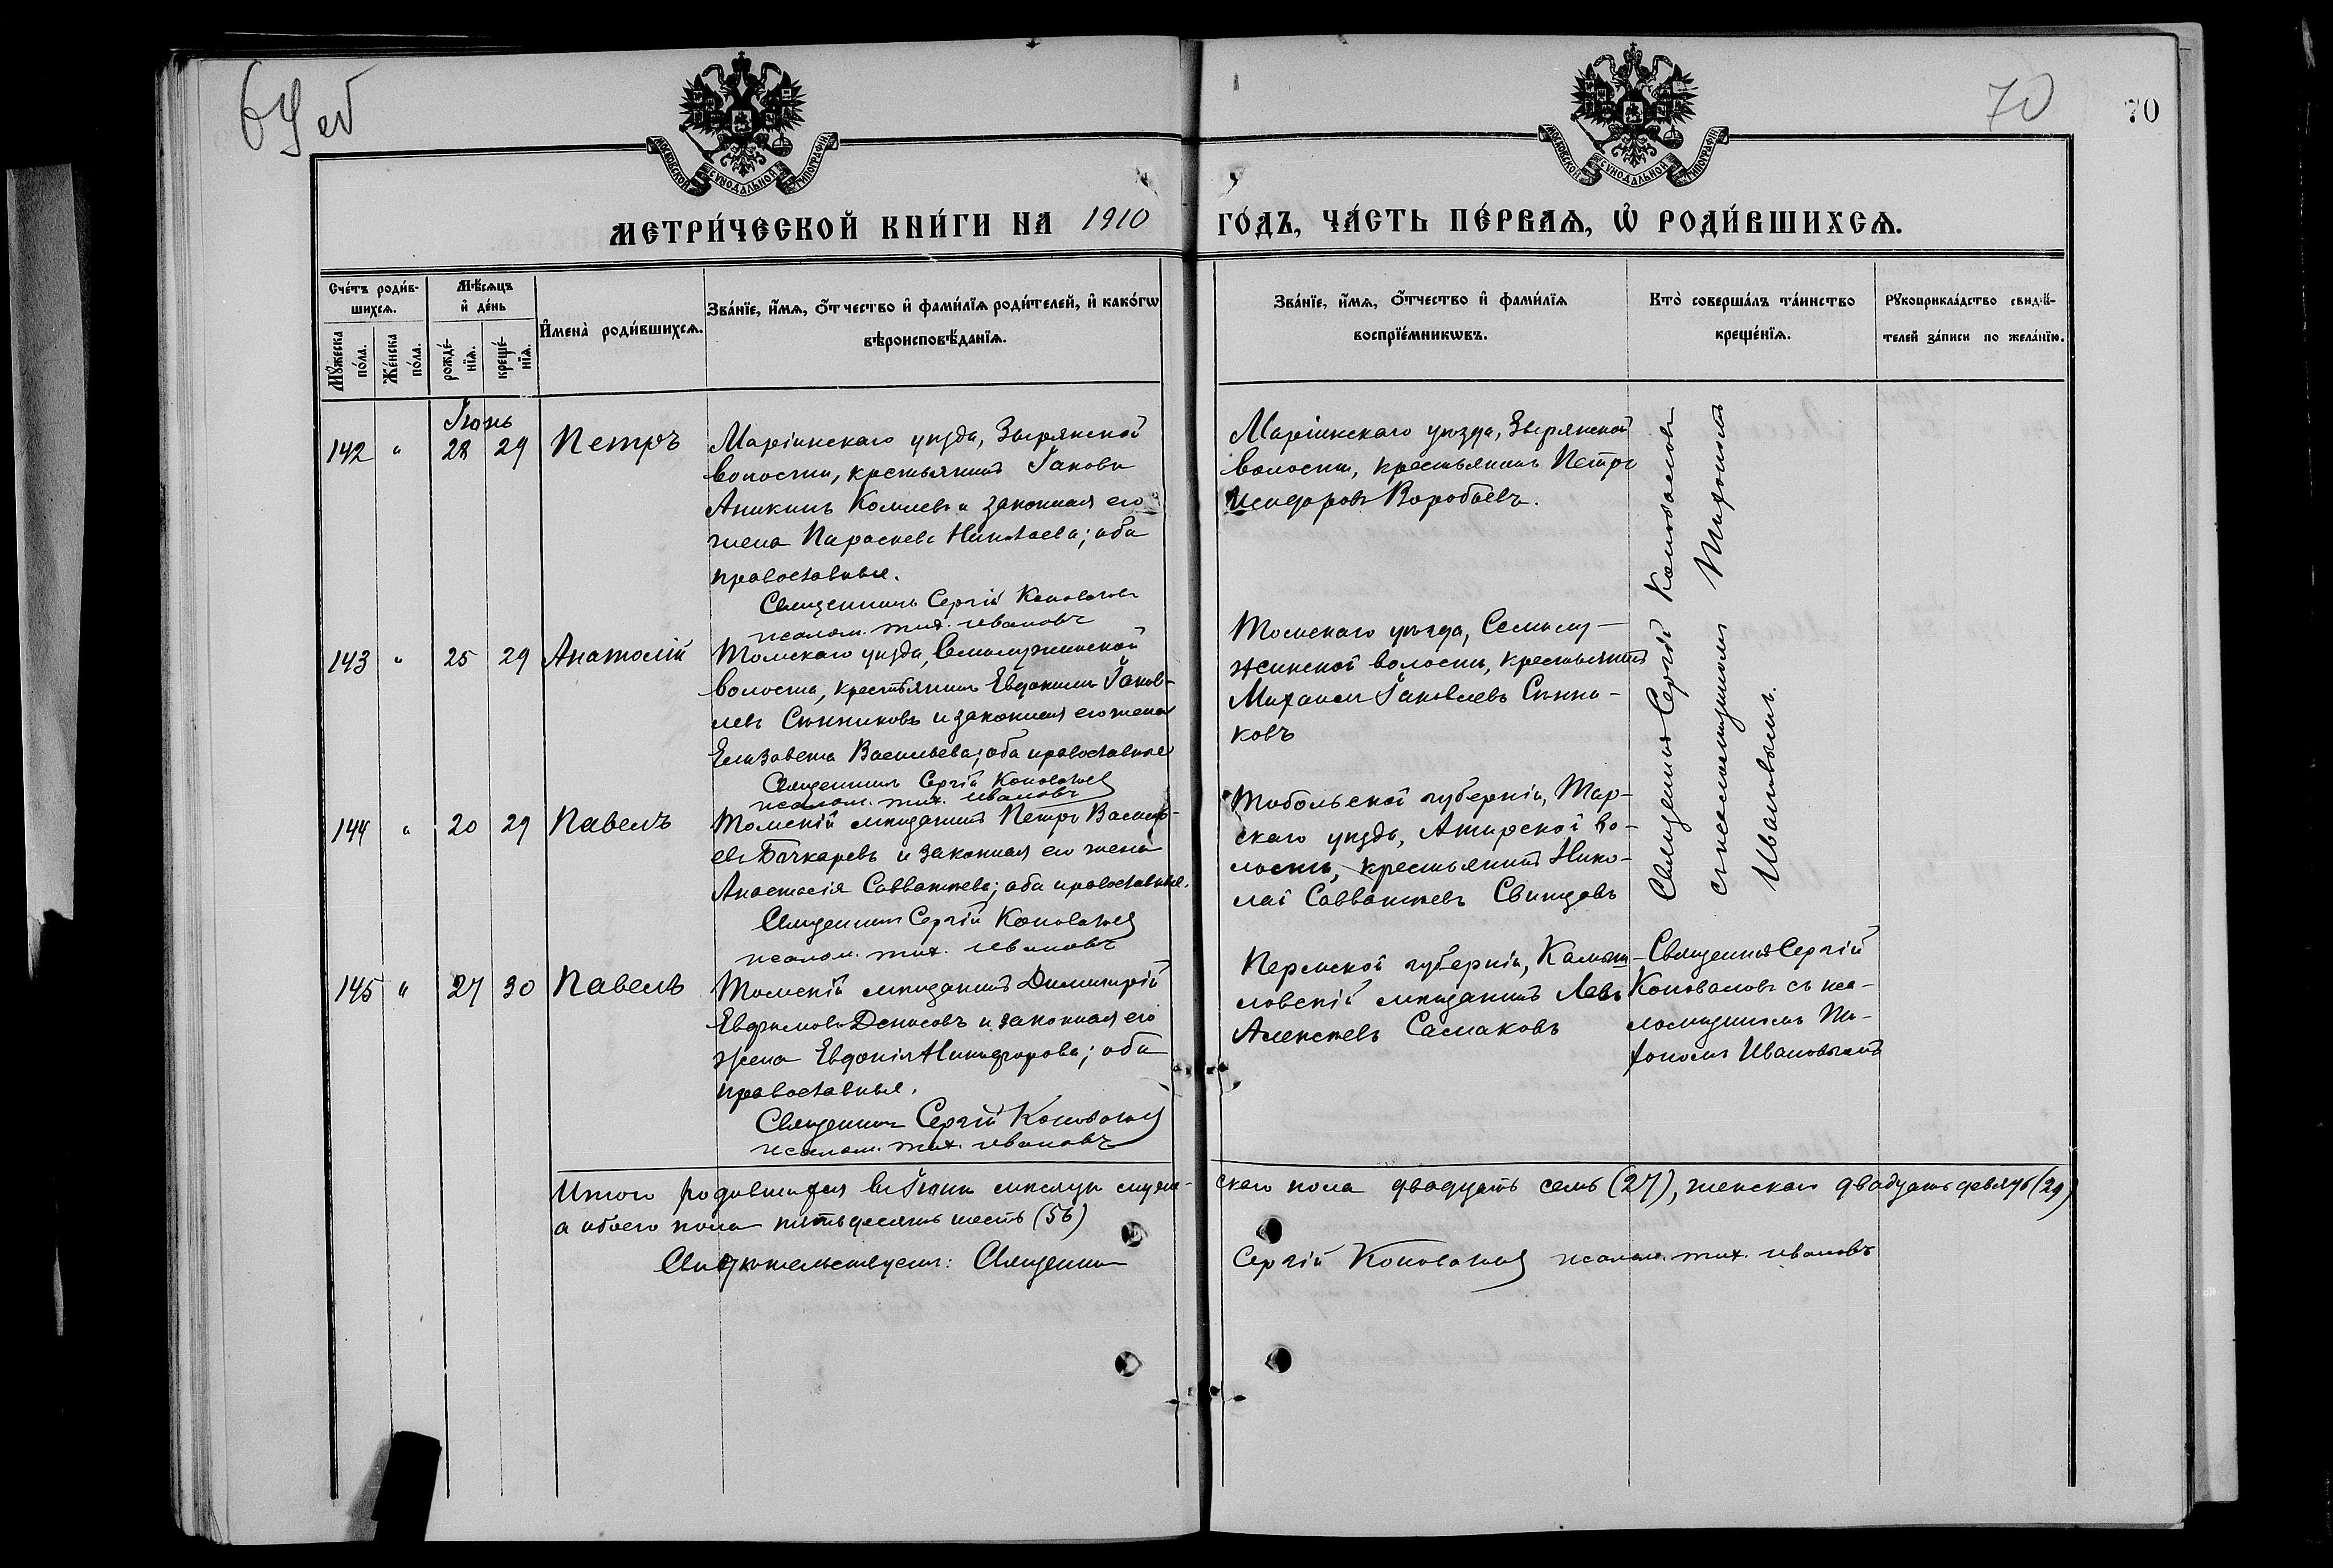 69 об
70
70
МОСКОВСКОЙ СѴНОДАЛЬНОЙ ТИПОГРАФІИ
МОСКОВСКОЙ СѴНОДАЛЬНОЙ ТИПОГРАФІИ
МЕТРИ́ЧЕСКОЙ КНИ́ГИ НА 1910 ГО́ДЪ, ЧА́СТЬ ПЕ́РВАѦ, Ѡ҆ РОДИ́ВШИХСѦ.
Сче́тъ роди́в-
шихсѧ.
Мꙋ́жеска
по́ла.
Же́нска
по́ла.
Мѣ́сѧцъ
и҆ де́нь
рожде́-
нїѧ.
креще́-
нїѧ.
И҆мена̀ роди́вшихсѧ.
Зва́нїе, и҆́мѧ, ѻ҆́тчество и҆ фамі́лїѧ роди́телей, и҆ како́гѡ
вѣроисповѣ́данїѧ.
Зва́нїе, и҆́мѧ, ѻ҆́тчество и҆ фамі́лїѧ
воспрїе́мникѡвъ.
Кто̀ соверша́лъ та́инство
креще́нїѧ.
Рꙋкоприкла́дство свидѣ́-
телей за́писи по жела́нїю.
Іюнь
142 " 28 29 Петръ
Маріинскаго уѣзда, Зырянской
волости, крестьянинъ Іаковъ
Аникинъ и законная его
жена Параскева Николаева; оба
православные.
Священникъ Сергій Коноваловъ
псалом. Тих. Ивановъ
Маріинскаго уѣзда, Зырянской
волости, крестьянинъ Петръ
Исидоровъ Воробьевъ.
143 " 25 29 Анатолій
Томскаго уѣзда, Семилужинской
волости, крестьянинъ Евдокимъ Іаков-
левъ Сѣнниковъ и законная его жена
Елизавета Васильева; оба православные
Священникъ Сергій Коноваловъ
псалом. Тих. Ивановъ
Томскаго уѣзда, Семилу-
жинской волости, крестьянинъ
Михаилъ Іаковлевъ Сѣнни-
ковъ
144 " 20 29 Павелъ
Томскій мѣщанинъ Петръ Василь-
евъ Бочкаревъ и законная его жена
Анастасія Савватѣева; оба православные.
Священникъ Сергій Коноваловъ
псалом. Тих. Ивановъ
Тобольской губерніи, Тар-
скаго уѣзда, Атирской во-
лости, крестьянинъ Нико-
лай Савватѣевъ Свинцовъ
Священникъ Сергій Коноваловъ
съ псаломщикомъ Тихономъ
Ивановымъ.
145 " 27 30 Павелъ
Томскій мѣщанинъ Димитрій
Евфимовъ Денисовъ и законная его
жена Евдокія Никифорова; оба
православные.
Священникъ Сергій Коноваловъ
псалом. Тих. Ивановъ
Пермской губерніи, Камыш-
ловскій мѣщанинъ Левъ
Алексѣевъ Самаковъ
Священникъ Сергій
Коноваловъ съ пса-
ломщикомъ Ти-
хономъ Ивановымъ
Итого родившихся въ Іюнѣ мѣсяцѣ мужескаго пола двадцать семь (27), женскаго двадцать девять (29)
а обоего пола пятьдесятъ шесть (56)
Свидѣтельствуемъ: Священникъ Сергій Коноваловъ псалом. Тих. Ивановъ